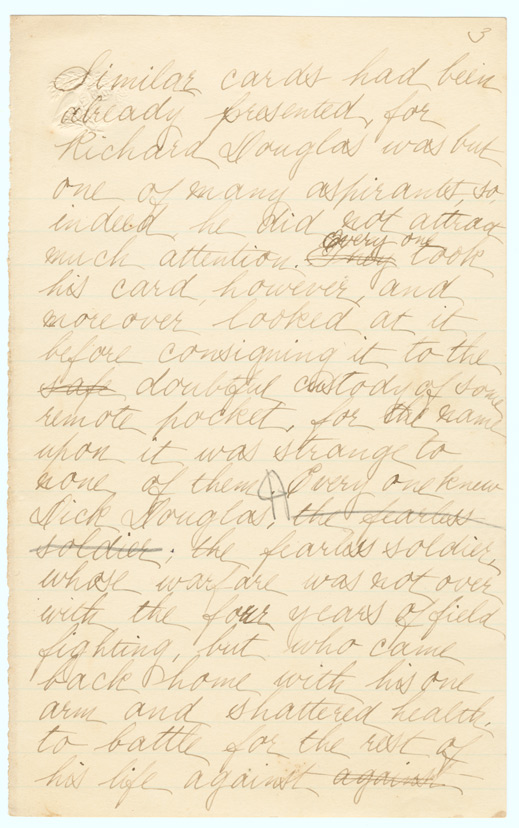 3
Similar cards had been
already presented, for
Richard Douglas was but
one of many aspirants, so,
indeed, he did not attract
much attention. ~~They~~ every one took
his card, however, and
moreover looked at it
before consigning it to the
~~safe~~ doubtful custody of some
remote pocket, for the name
upon it was strange to
none of them. Every one knew
Dick Douglas, ~~the fearless~~
~~soldier~~; the fearless soldier,
whose warfare was not over
with the four years of field
fighting, but who came
back home with his one
arm and shattered health,
to battle for the rest of
his life against ~~against~~